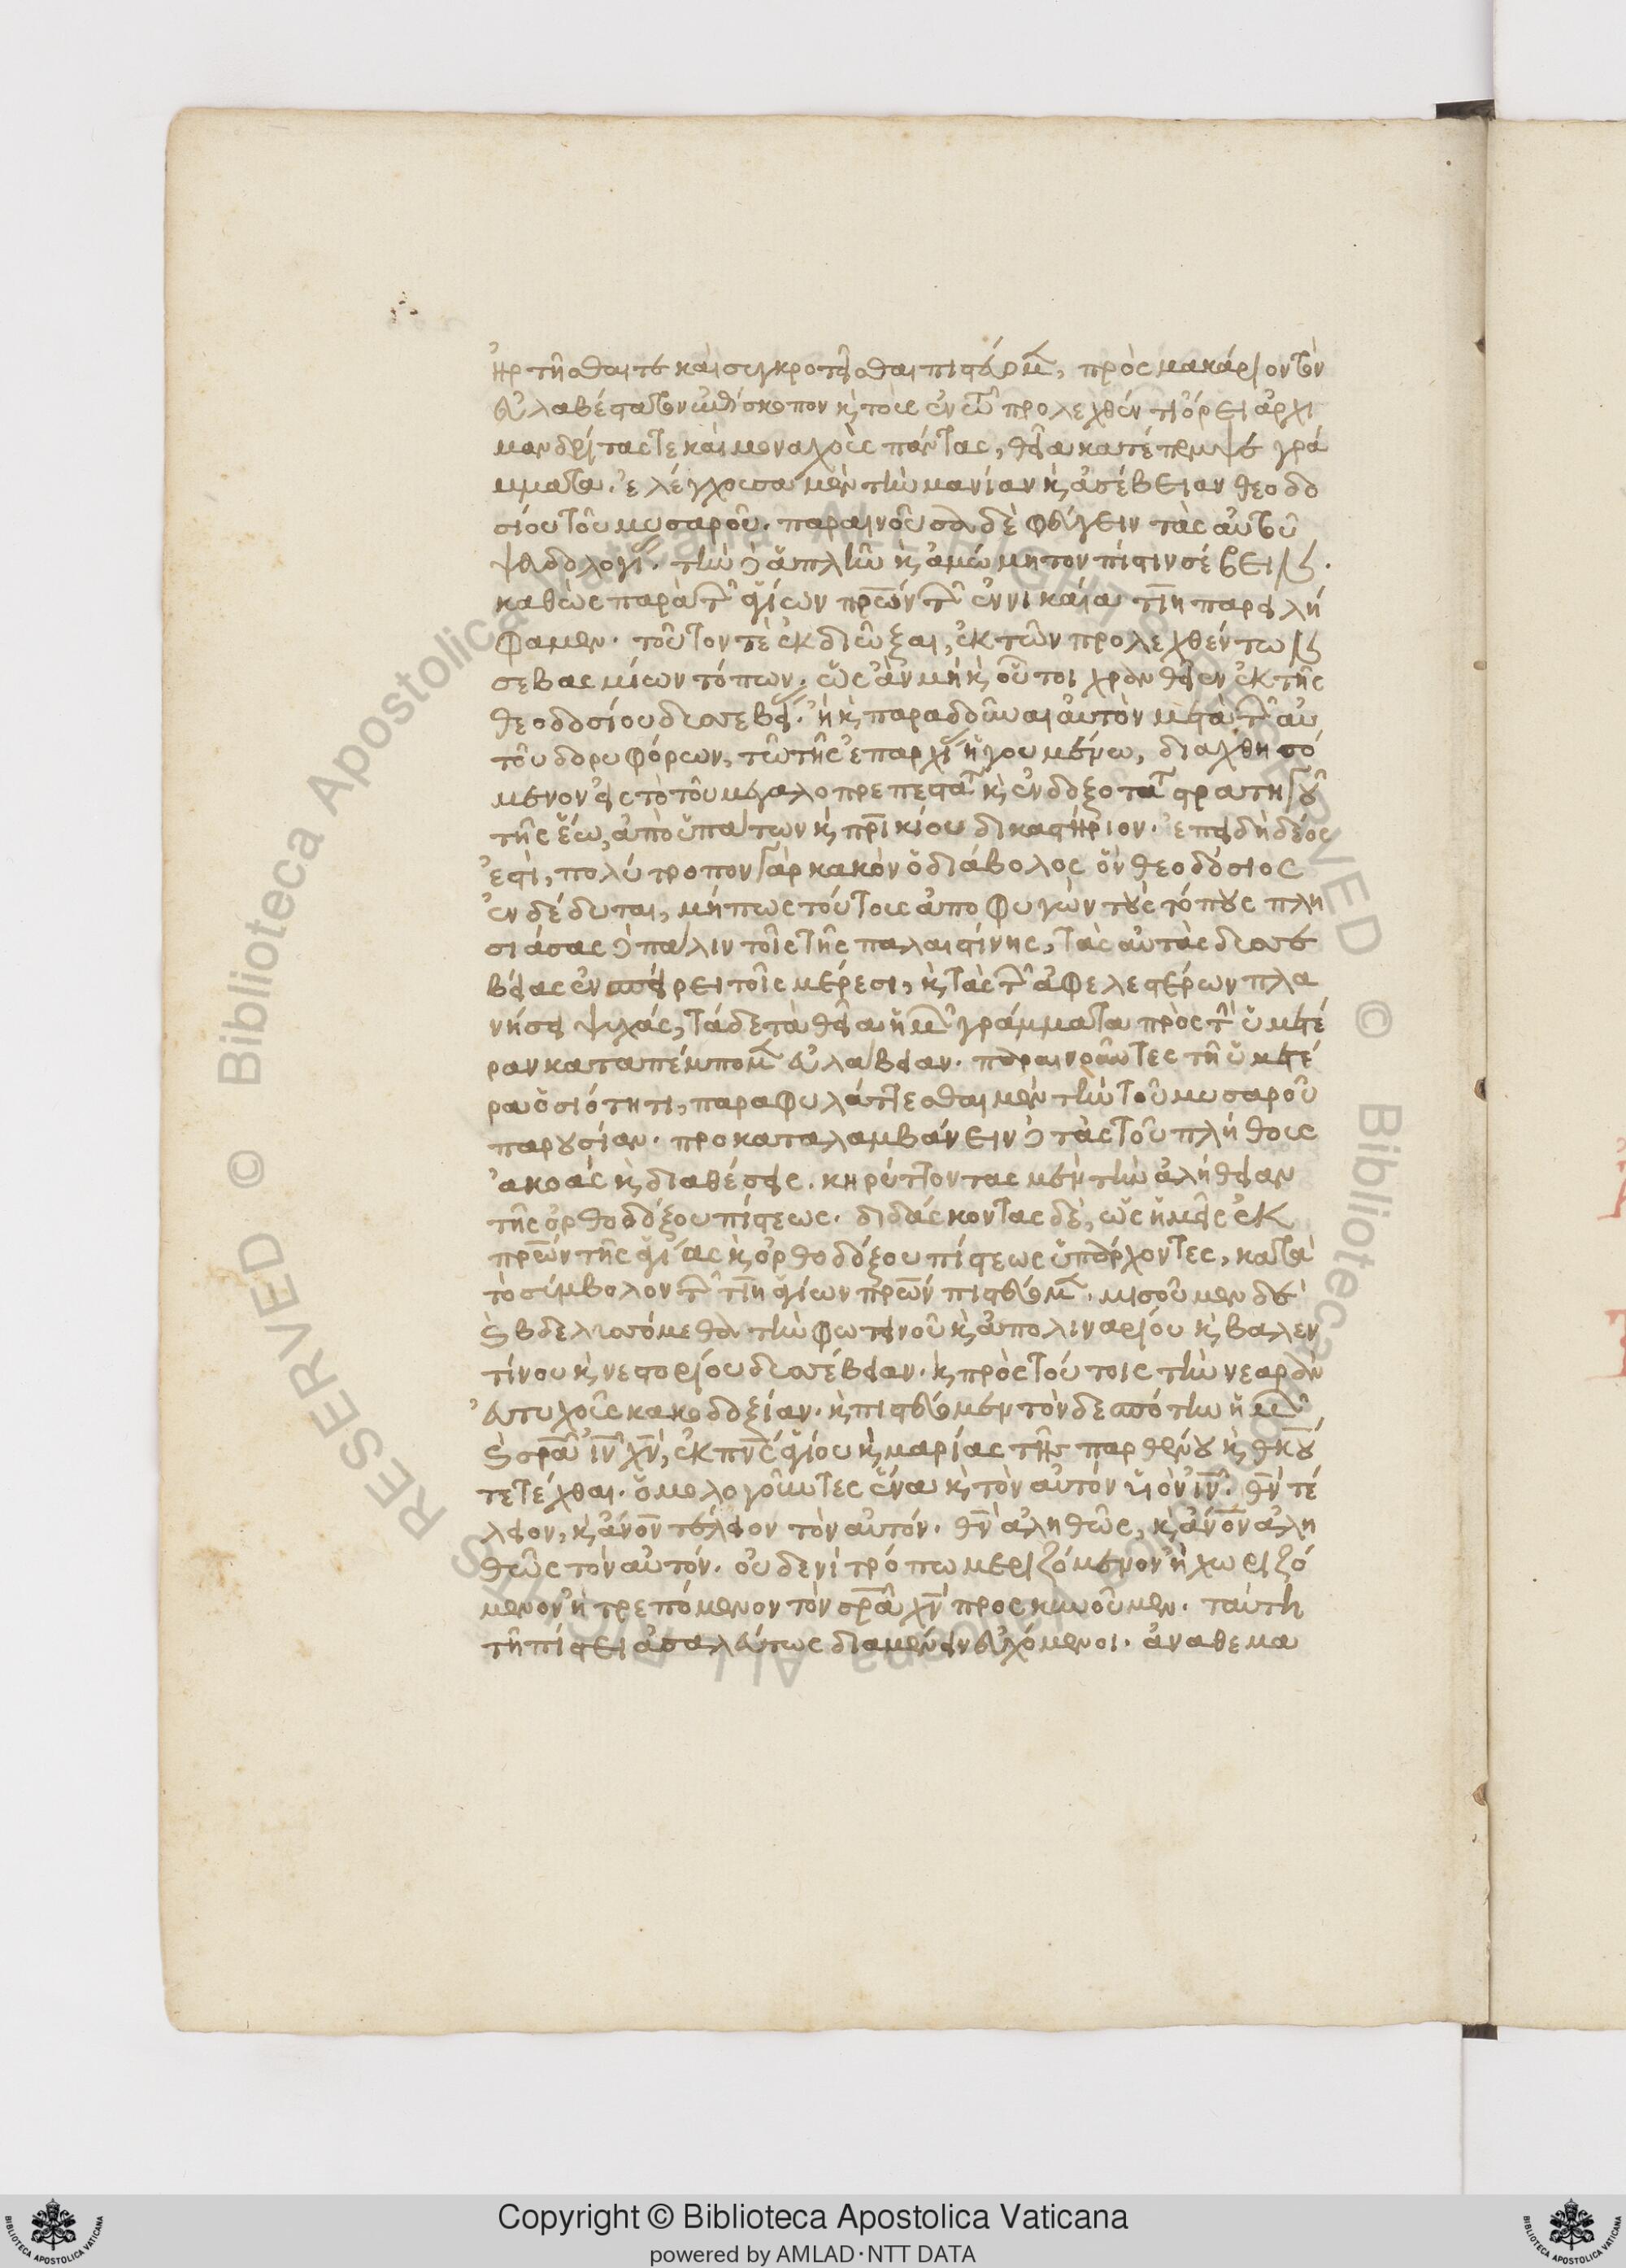 ἠρτῆσθαί τε καὶ συγκροτεῖσθαι πιστεύομ, πρὸς μακάριον τὸν
εὐλαβέστατον ἐπίσκοπον κ τοὺς ἐν τῶ προλεχθέντι ὄρει ἀρχι
μανδρίτας τὲ καὶ μοναχοὺς πάντας, θεῖα κατέπεμψε γρά
μματα. ἐλέγχουσα μὲν τὴν μανίαν κ ἀσέβειαν θεοδο
σίου τοῦ μυσαροῦ. παραινοῦσα δὲ φεύγειν τὰς αὐτοῦ
ψευδολογί. τὴν δὲ ἁπλῆν κ ἀμώμητον πίστιν σέβειν.
καθὼς παρὰ τῶν ἁγίων πρων τῶν ἐν νικαία τιη παρειλή
φαμεν. τοῦτόν τε ἐκδιῶξαι, ἐκ τῶν προλεχθέντων
σεβασμίων τόπων. ὡς ἂν μὴ κ οὗτοι χρανθεῖεν ἐκ τῆς
θεοδοσίου δυσσεβεί. ἢ κ παραδοῦναι αὐτὸν μετὰ τῶν αὐ
τοῦ δορυφόρων, τῶ τῆς ἐπαρχί ἡγουμένω, διαχθησό
μενον εἰς τὸ τοῦ μεγαλοπρεπεστάτ κ ἐνδοξοτάτ στρατηγοῦ
τῆς ἕω, ἀπὸ ὑπάτων κ πρικίου δικαστήριον. ἐπειδὴ δέος
ἐστὶ, πολύτροπον γὰρ κακὸν ὁ διάβολος ὃν θεοδόσιος
ἐνδέδυται, μήπως τούτους ἀποφυγὼν τοὺς τόπους πλη
σιάσας δὲ πάλιν τοῖς τῆς παλαιστίνης, τὰς αὐτὰς δυσσε
βείας ἐνσπείρει τοῖς μέρεσι, κ τὰς τῶν ἀφελεστέρων πλα
νήσει ψυχάς, τάδε τὰ θεῖα ἡμῶν γράμματα πρὸς τὴν ὑμετέ
ραν καταπέμπομ εὐλάβειαν. παραινοῦντες τῆ ὑμετέ
ρα ὁσιότητι, παραφυλάττεσθαι μὲν τὴν τοῦ μυσαροῦ
παρουσίαν. προκαταλαμβάνειν δὲ τὰς τοῦ πλήθους
ἀκοὰς κ διαθέσεις. κηρύττοντας μὲν τὴν ἀλήθειαν
τῆς ὀρθοδόξου πίστεως. διδάσκοντας δὲ, ὡς ἡμεῖς ἐκ
πρων τῆς ἁγίας κ ὀρθοδόξου πίστεως ὑπάρχοντες, κατὰ
τὸ σύμβολον τῶν τιη ἁγίων πρων πιστεύομ. μισοῦμεν δὲ
κ βδελυσσόμεθα τὴν φωτεινοῦ κ ἀπολιναρίου κ βαλεν
τίνου κ νεστορίου δυσσέβειαν. κ πρὸς τούτοις τὴν νεαρὰν
εὐτυχοῦς κακοδοξίαν. κ πιστεύομεν τὸν δεσπότην ἡμῶν
κ σρα ιν χν, ἐκ πνς ἁγίου κ μαρίας τῆς παρθένου κ θκου
τετέχθαι. ὁμολογοῦντες ἕνα κ τὸν αὐτόν υἱὸν ιν. θν τέ
λειον, κ ανον τέλειον τὸν αὐτόν. θν ἀληθῶς, κ ανον ἀλη
θῶς τὸν αὐτόν. οὐδενὶ τρόπω μεριζόμενον ἢ χωριζό
μενον ἢ τρεπόμενον τὸν σρα χν προσκυνοῦμεν. ταύτη
τῆ πίστει ἀσαλεύτως διαμένειν εὐχόμενοι. ἀναθεμα
Copyright © Biblioteca Apostolica Vaticana
powered by AMLAD·NTT DATA